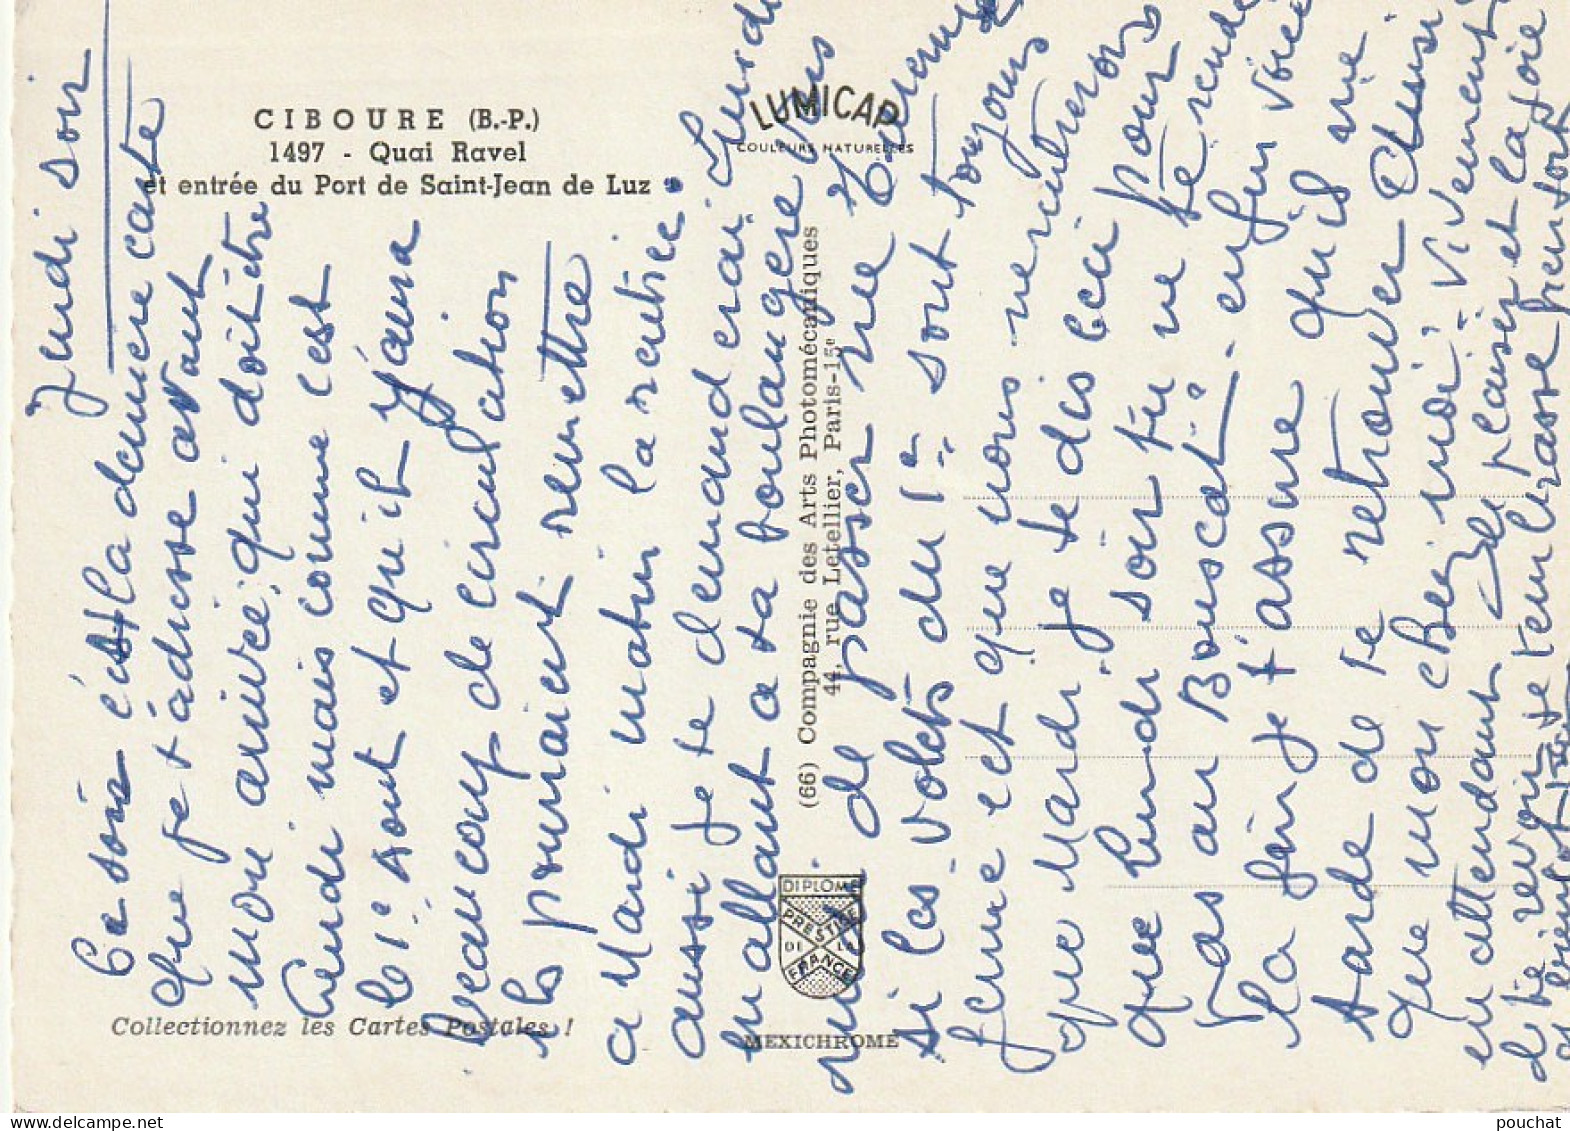 CIBOURE (B.-P.)
1497 - Quai Ravel
et entrée du Port de Saint-Jean de Luz
LUMICAP
COULEURS NATURELLES
(66) Compagnie des Arts Photomécaniques
44, rue Letellier, Paris-15e
DIPLOME
PRESTIGE
DE LA
FRANCE
MEXICHROME
Collectionnez les Cartes Postales !
Jeudi soir
Ce soir c'est la dernière carte
que je t'adresse avant
mon arrivée, qui doit être
Lundi mais comme c'est
le 1er Aout et qu'il y aura
beaucoup de circulation
ils pourraient remettre
a Mardi matin la rentrée.
aussi je te demanderai Lundi
en allant a ta boulangère
de passer rue
si les volets du 1er sont toujours
fermé c'est que nous ne rentrerons
que Mardi. Je te dis ceci pour
que Lundi soir tu ne te rende
pas au Bouscat. enfin
la fin je t'assure qu'il me
tarde de te retrouver
que mon chez moi. Vivement
en attendant le plaisir et la joie
de te revoir je t'embrasse bien fort
pouchat